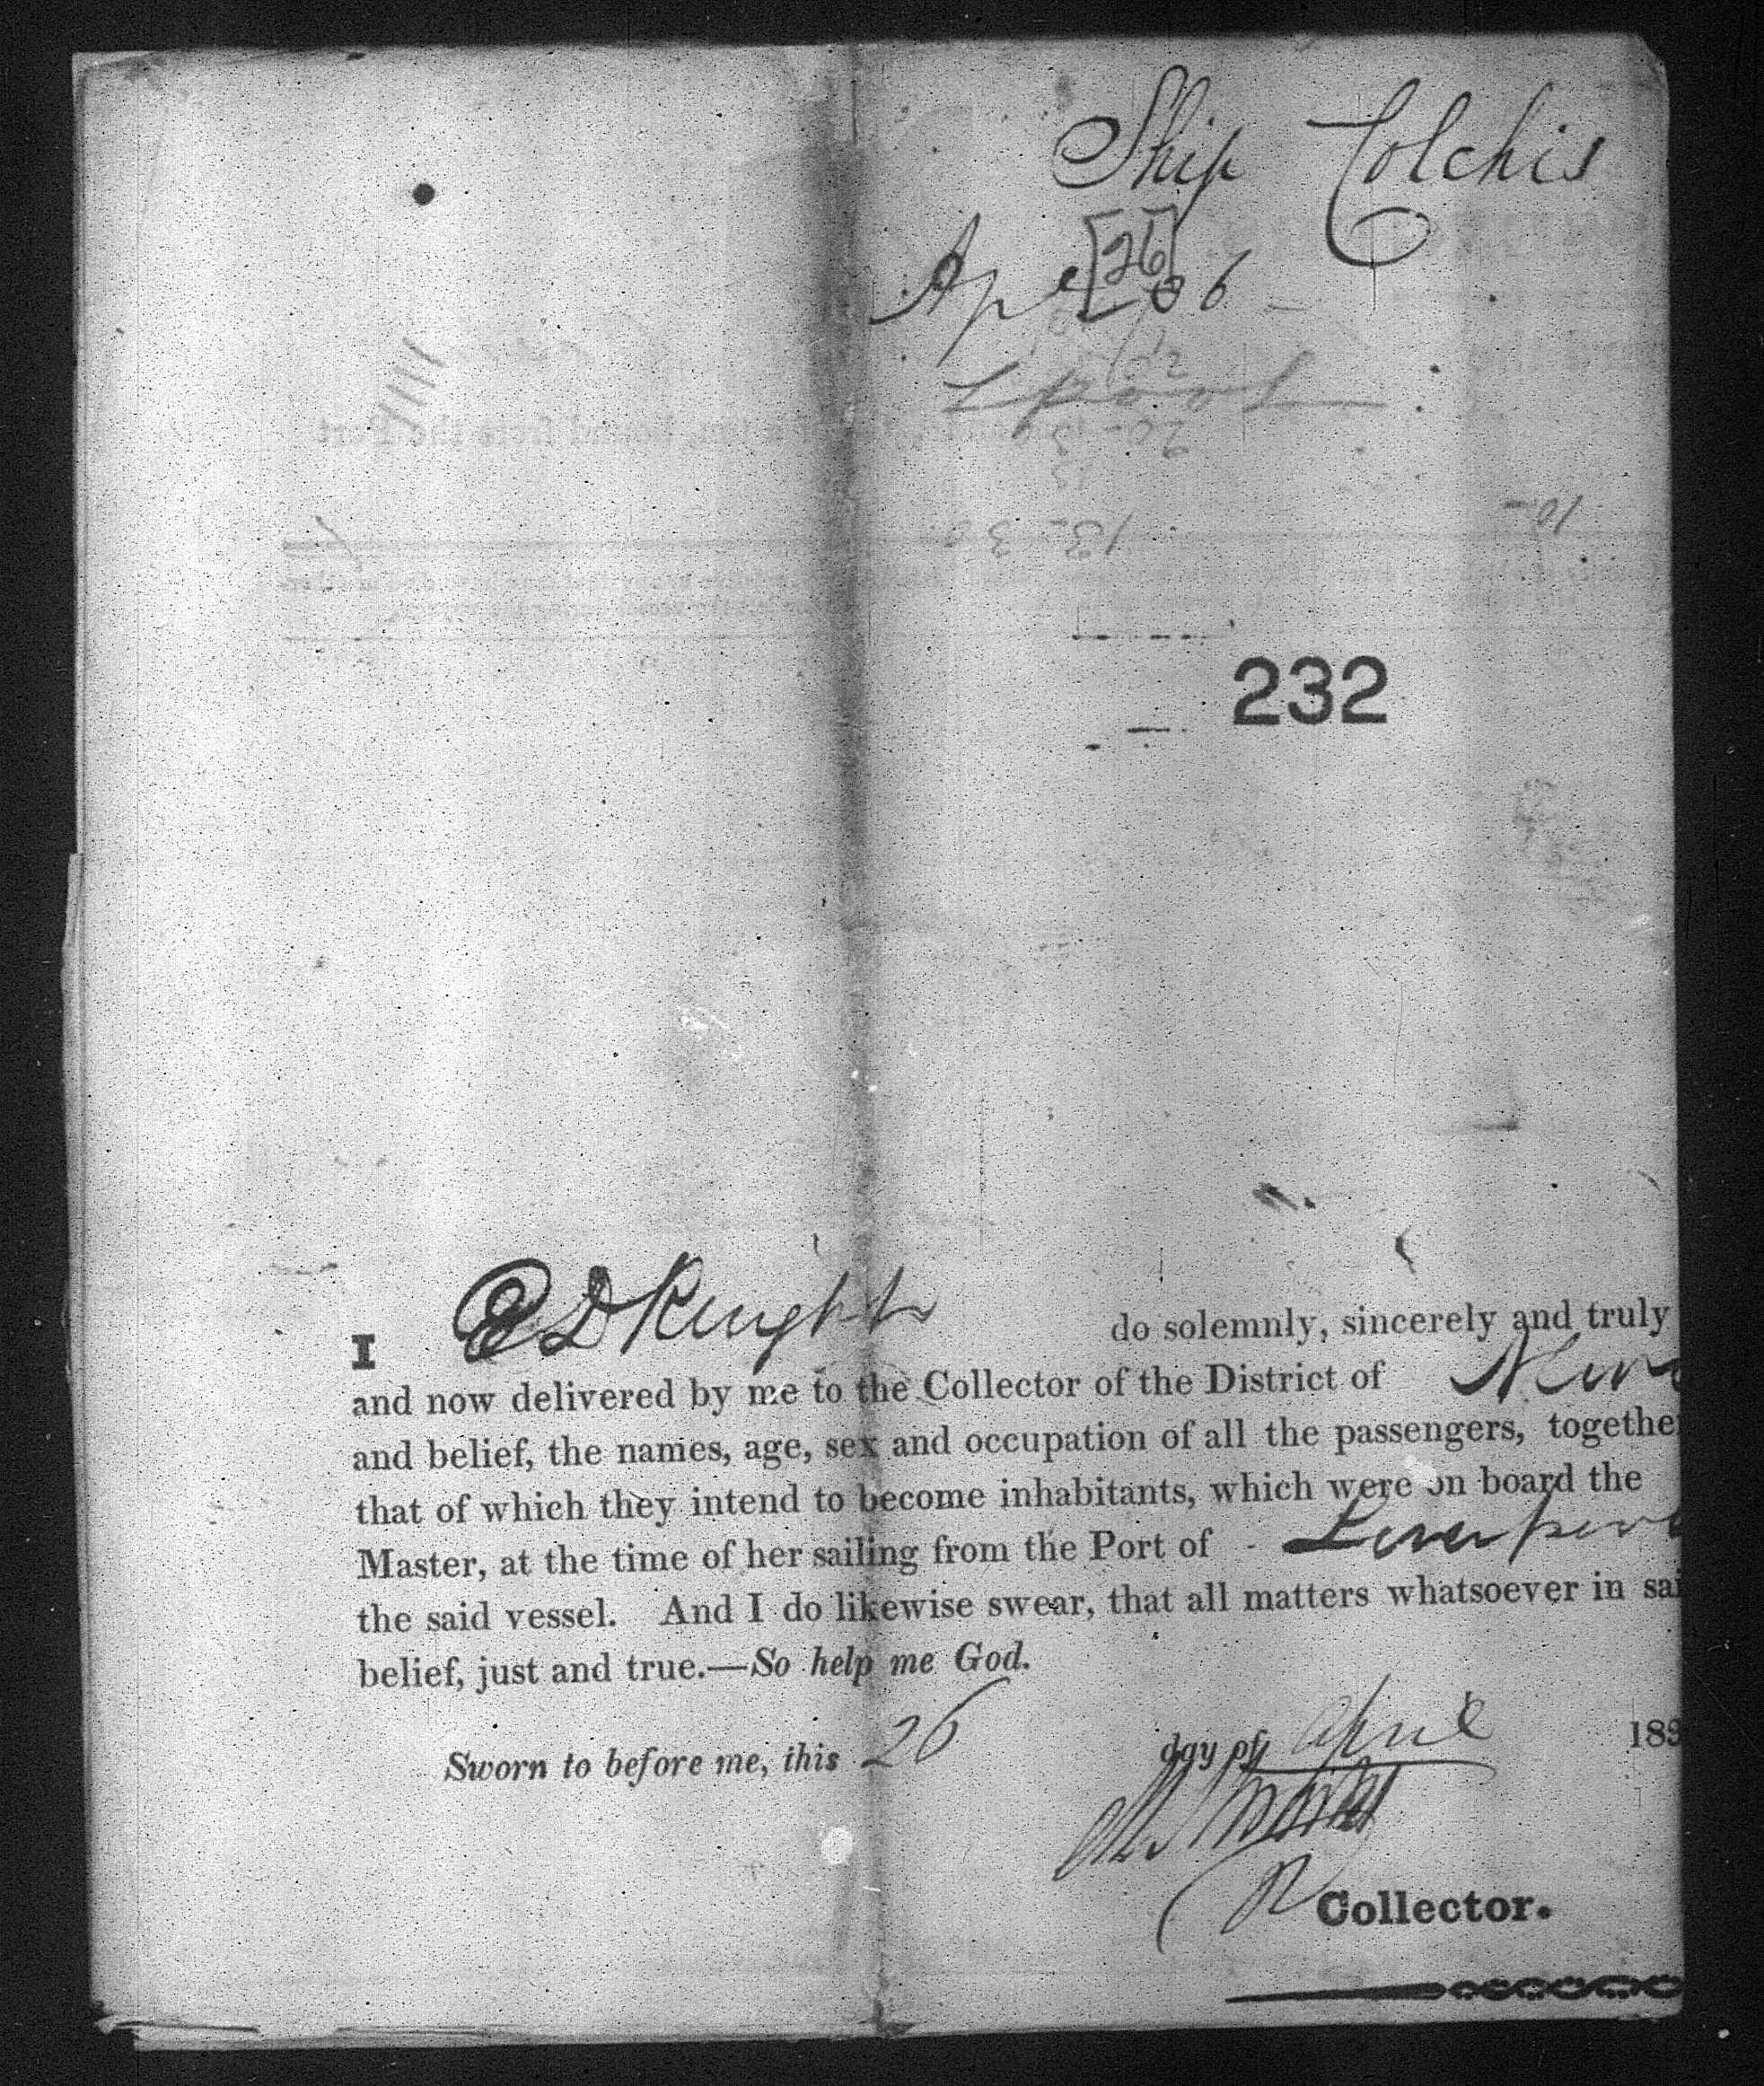 Ship Colchis
Apl 26
[26]
Lpool
20
13
10-
232
I E D Knight do solemnly, sincerely and truly
and now delivered by me to the Collector of the District of New
and belief, the names, age, sex and occupation of all the passengers, together
that of which they intend to become inhabitants, which were on board the
Master, at the time of her sailing from the Port of - Liverpool
the said vessel. And I do likewise swear, that all matters whatsoever in sai
belief, just and true.—So help me God.
Sworn to before me, this 26 day of April 183
Collector.